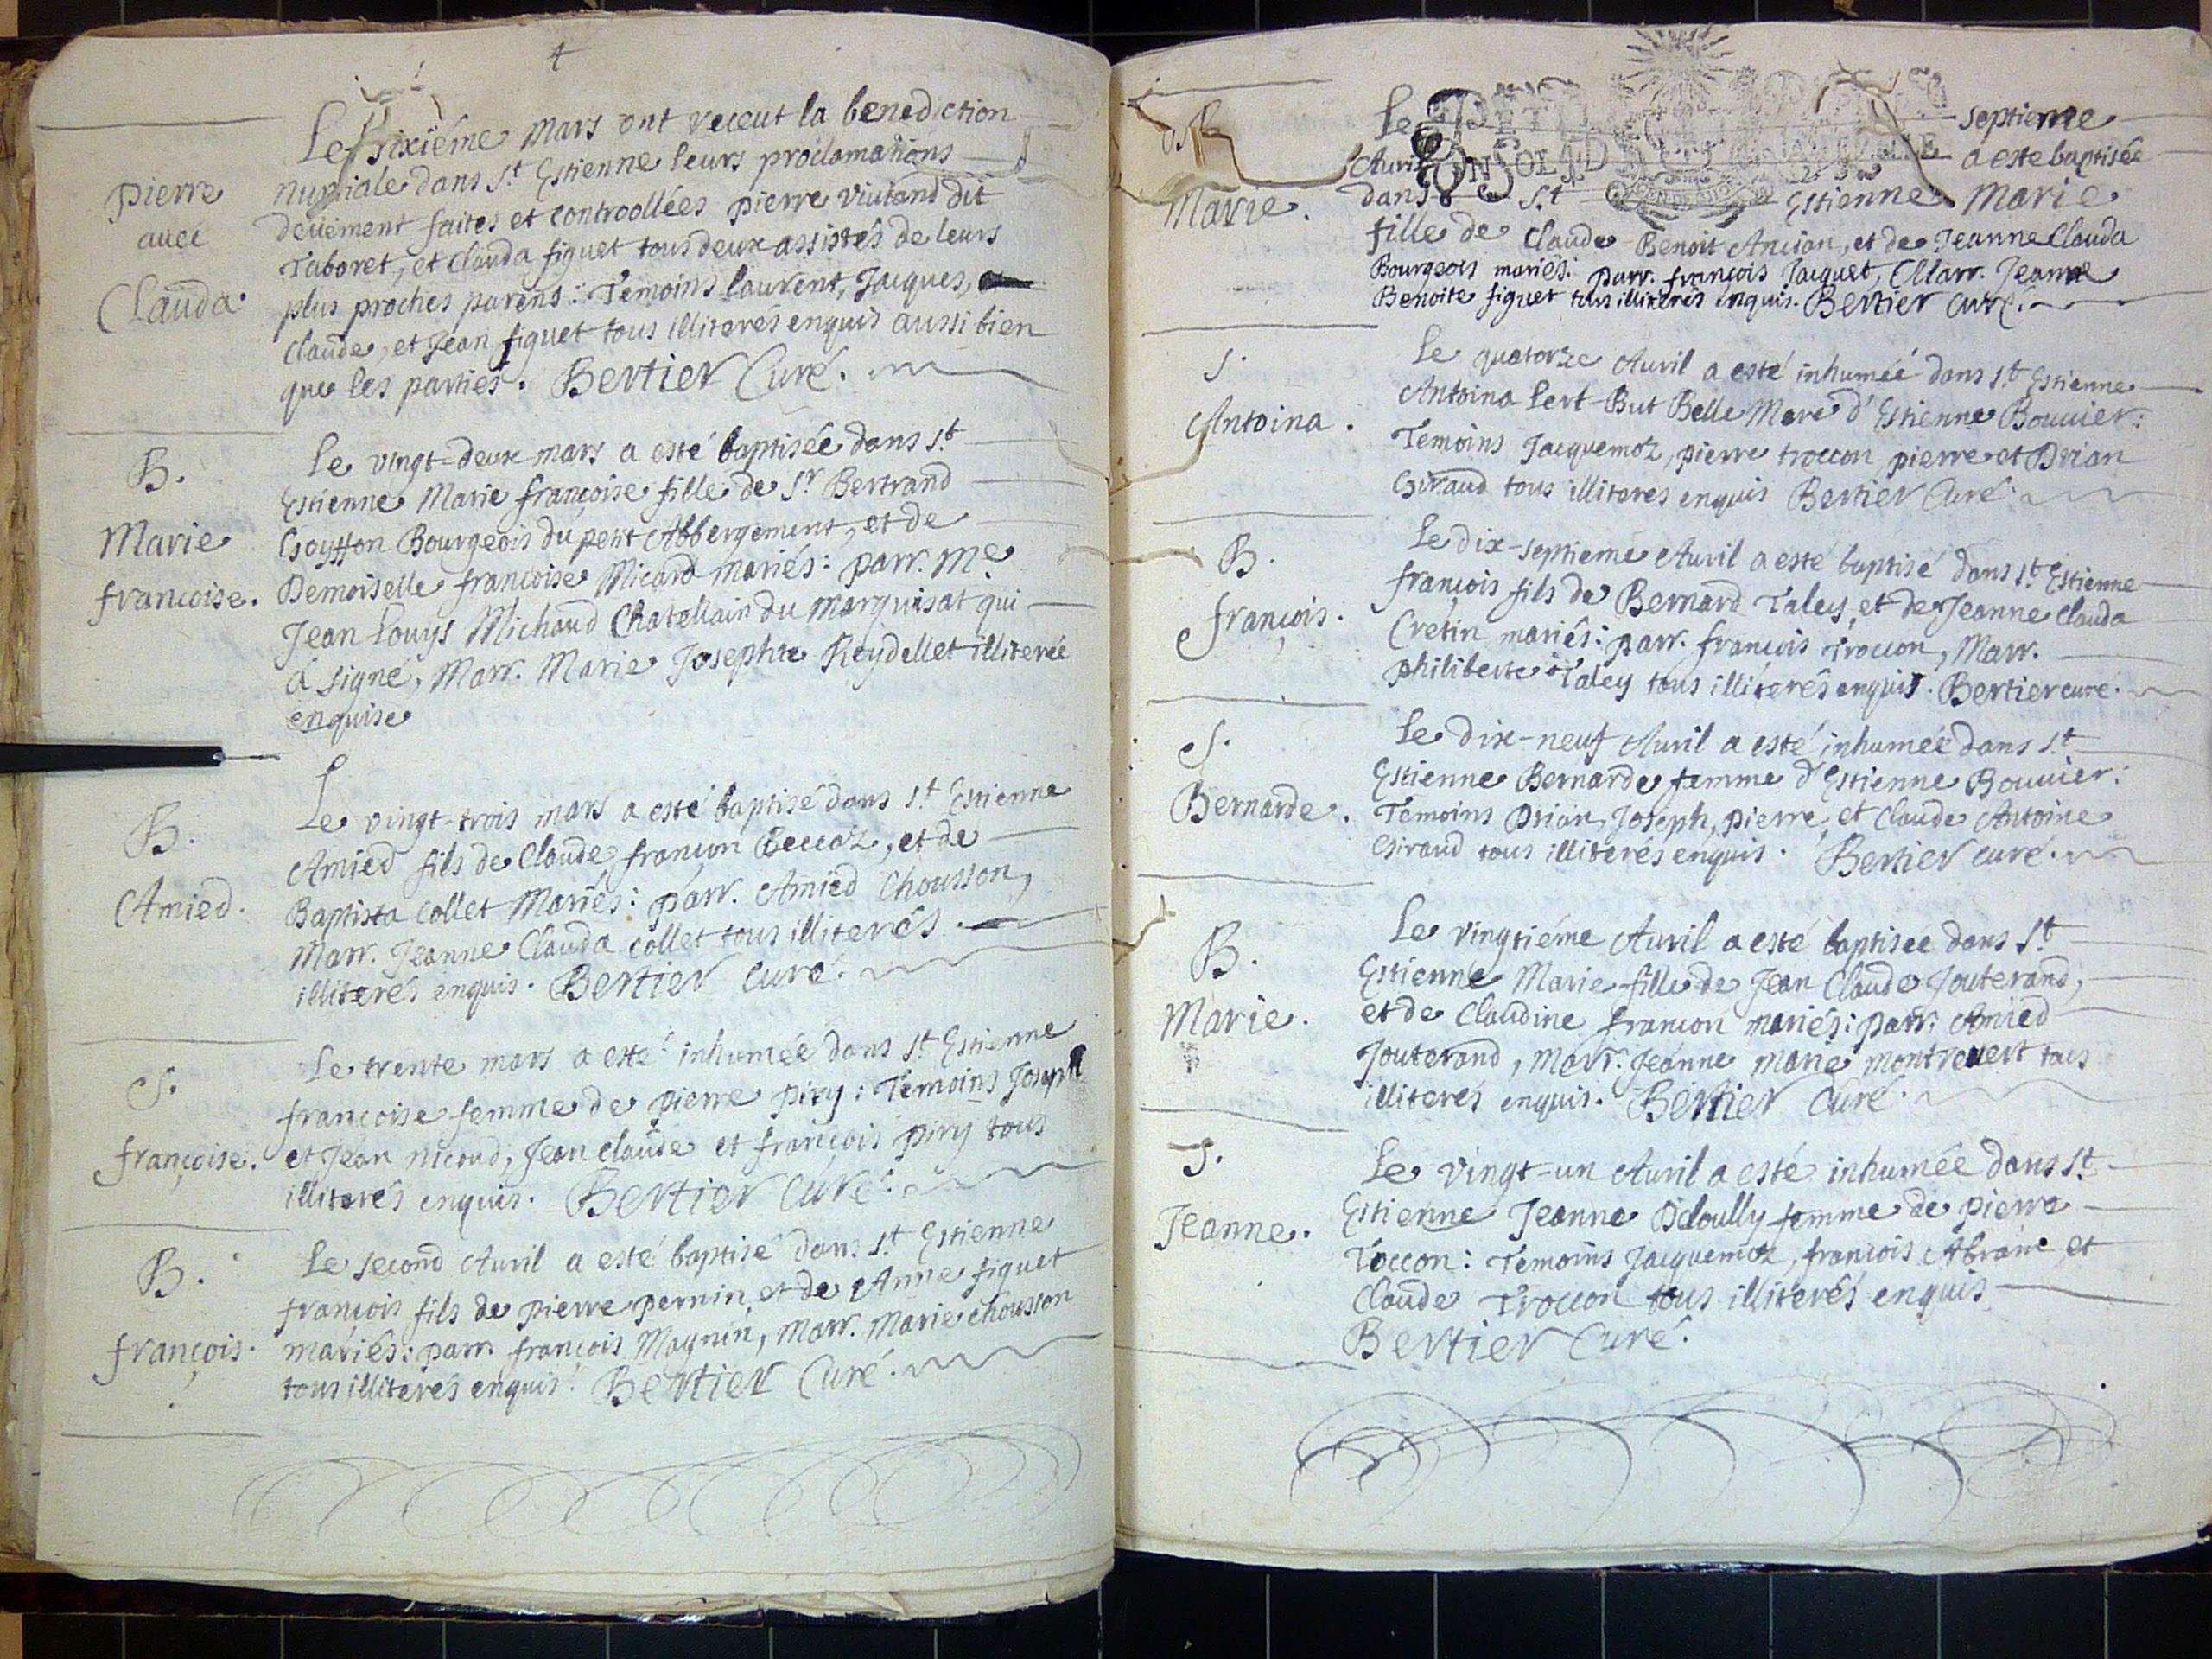 4
Le sixiéme Mars ont receut la benediction
nuptiale dans S.t Estienne leurs proclamations
Pierre
deüement faites et controollées pierre viutand dit
avec
Taboret, et Clauda figuet tous deux assistés de leurs
Clauda.
plus proches parens: Temoins laurent, Jacques,
Claude, et Jean figuet tous illiterés enquis aussi bien
que les parties. Bertier Curé.
B.
Le vingt-deux mars a esté baptisée dans S.t
Estienne Marie françoise fille de S.r Bertrand
Marie
Goyffon Bourgeois du petit Abbergement, et de
françoise.
Demoiselle françoise Micard mariés: parr. M.e
Jean Louys Michaud Chatellain du Marquisat qui
á signé, Marr. Marie Josephte Reydellet illiterée
enquise
B.
Le vingt-trois mars a esté baptisé dans S.t Estienne
Amied fils de Claude françon Beccaz, et de
Amied.
Baptista Collet Mariés: parr. Amied Chousson,
Marr. Jeanne Clauda collet tous illiterés
illiterés enquis. Bertier curé.
S.
Le trente mars a esté inhumée dans S.t Estienne
françoise femme de pierre piry: Temoins Joseph
françoise.
et Jean nicoud, Jean claude et françois piry tous
illiterés enquis. Bertier Curé.
B.
Le second Avril a esté baptisé dans S.t Estienne
françois fils de pierre pernin, et de Anne figuet
françois.
mariés: parr. françois Magnin, Marr. Marie chousson
tous illiterés enquis. Bertier Curé.
B
Le septieme
Avril a este baptisée
Marie.
dans S.t Estienne Marie
fille de Claude Benoit Ancian, et de Jeanne Clauda
Bourgeois mariés: parr. françois Jacquet, Marr. Jeanne
Benoite figuet tous illiterés enquis. Bertier Curé.
S.
Le quatorze Avril a esté inhumée dans S.t Estienne
Antoina.
Antoina Lert-But Belle Mere d'Estienne Bouvier:
Temoins Jacquemoz, pierre troccon pierre et Drian
Giraud tous illiteres enquis Bertier Curé.
B.
Le dix-septieme Avril a esté baptisé dans S.t Estienne
françois.
françois fils de Bernard Taley, et de Jeanne Clauda
Cretin mariés: parr. françois Troccon, Marr.
philiberte Taley tous illiterés enquis. Bertier curé.
S.
Le dix-neuf Avril a esté inhumée dans S.t
Estienne Bernarde femme d'Estienne Bouvier:
Bernarde.
Temoins Drian, Joseph, pierre, et Claude Antoine
Giraud tous illiterés enquis. Bertier curé.
B.
Le vingtiéme Avril a esté baptisee dans S.t
Estienne Marie fille de Jean Claude Jouterand,
Marie.
et de Claudine françon mariés: parr. Amied
Jouterand, Marr. Jeanne marie montrevert tous
illiterés enquis. Bertier Curé.
S.
Le vingt-un Avril a esté inhumée dans S.t
Jeanne.
Estienne Jeanne Deloully femme de pierre
Toccon: Temoins Jacquemoz, françois Abram et
Claude Troccon tous illiterés enquis
Bertier Curé.